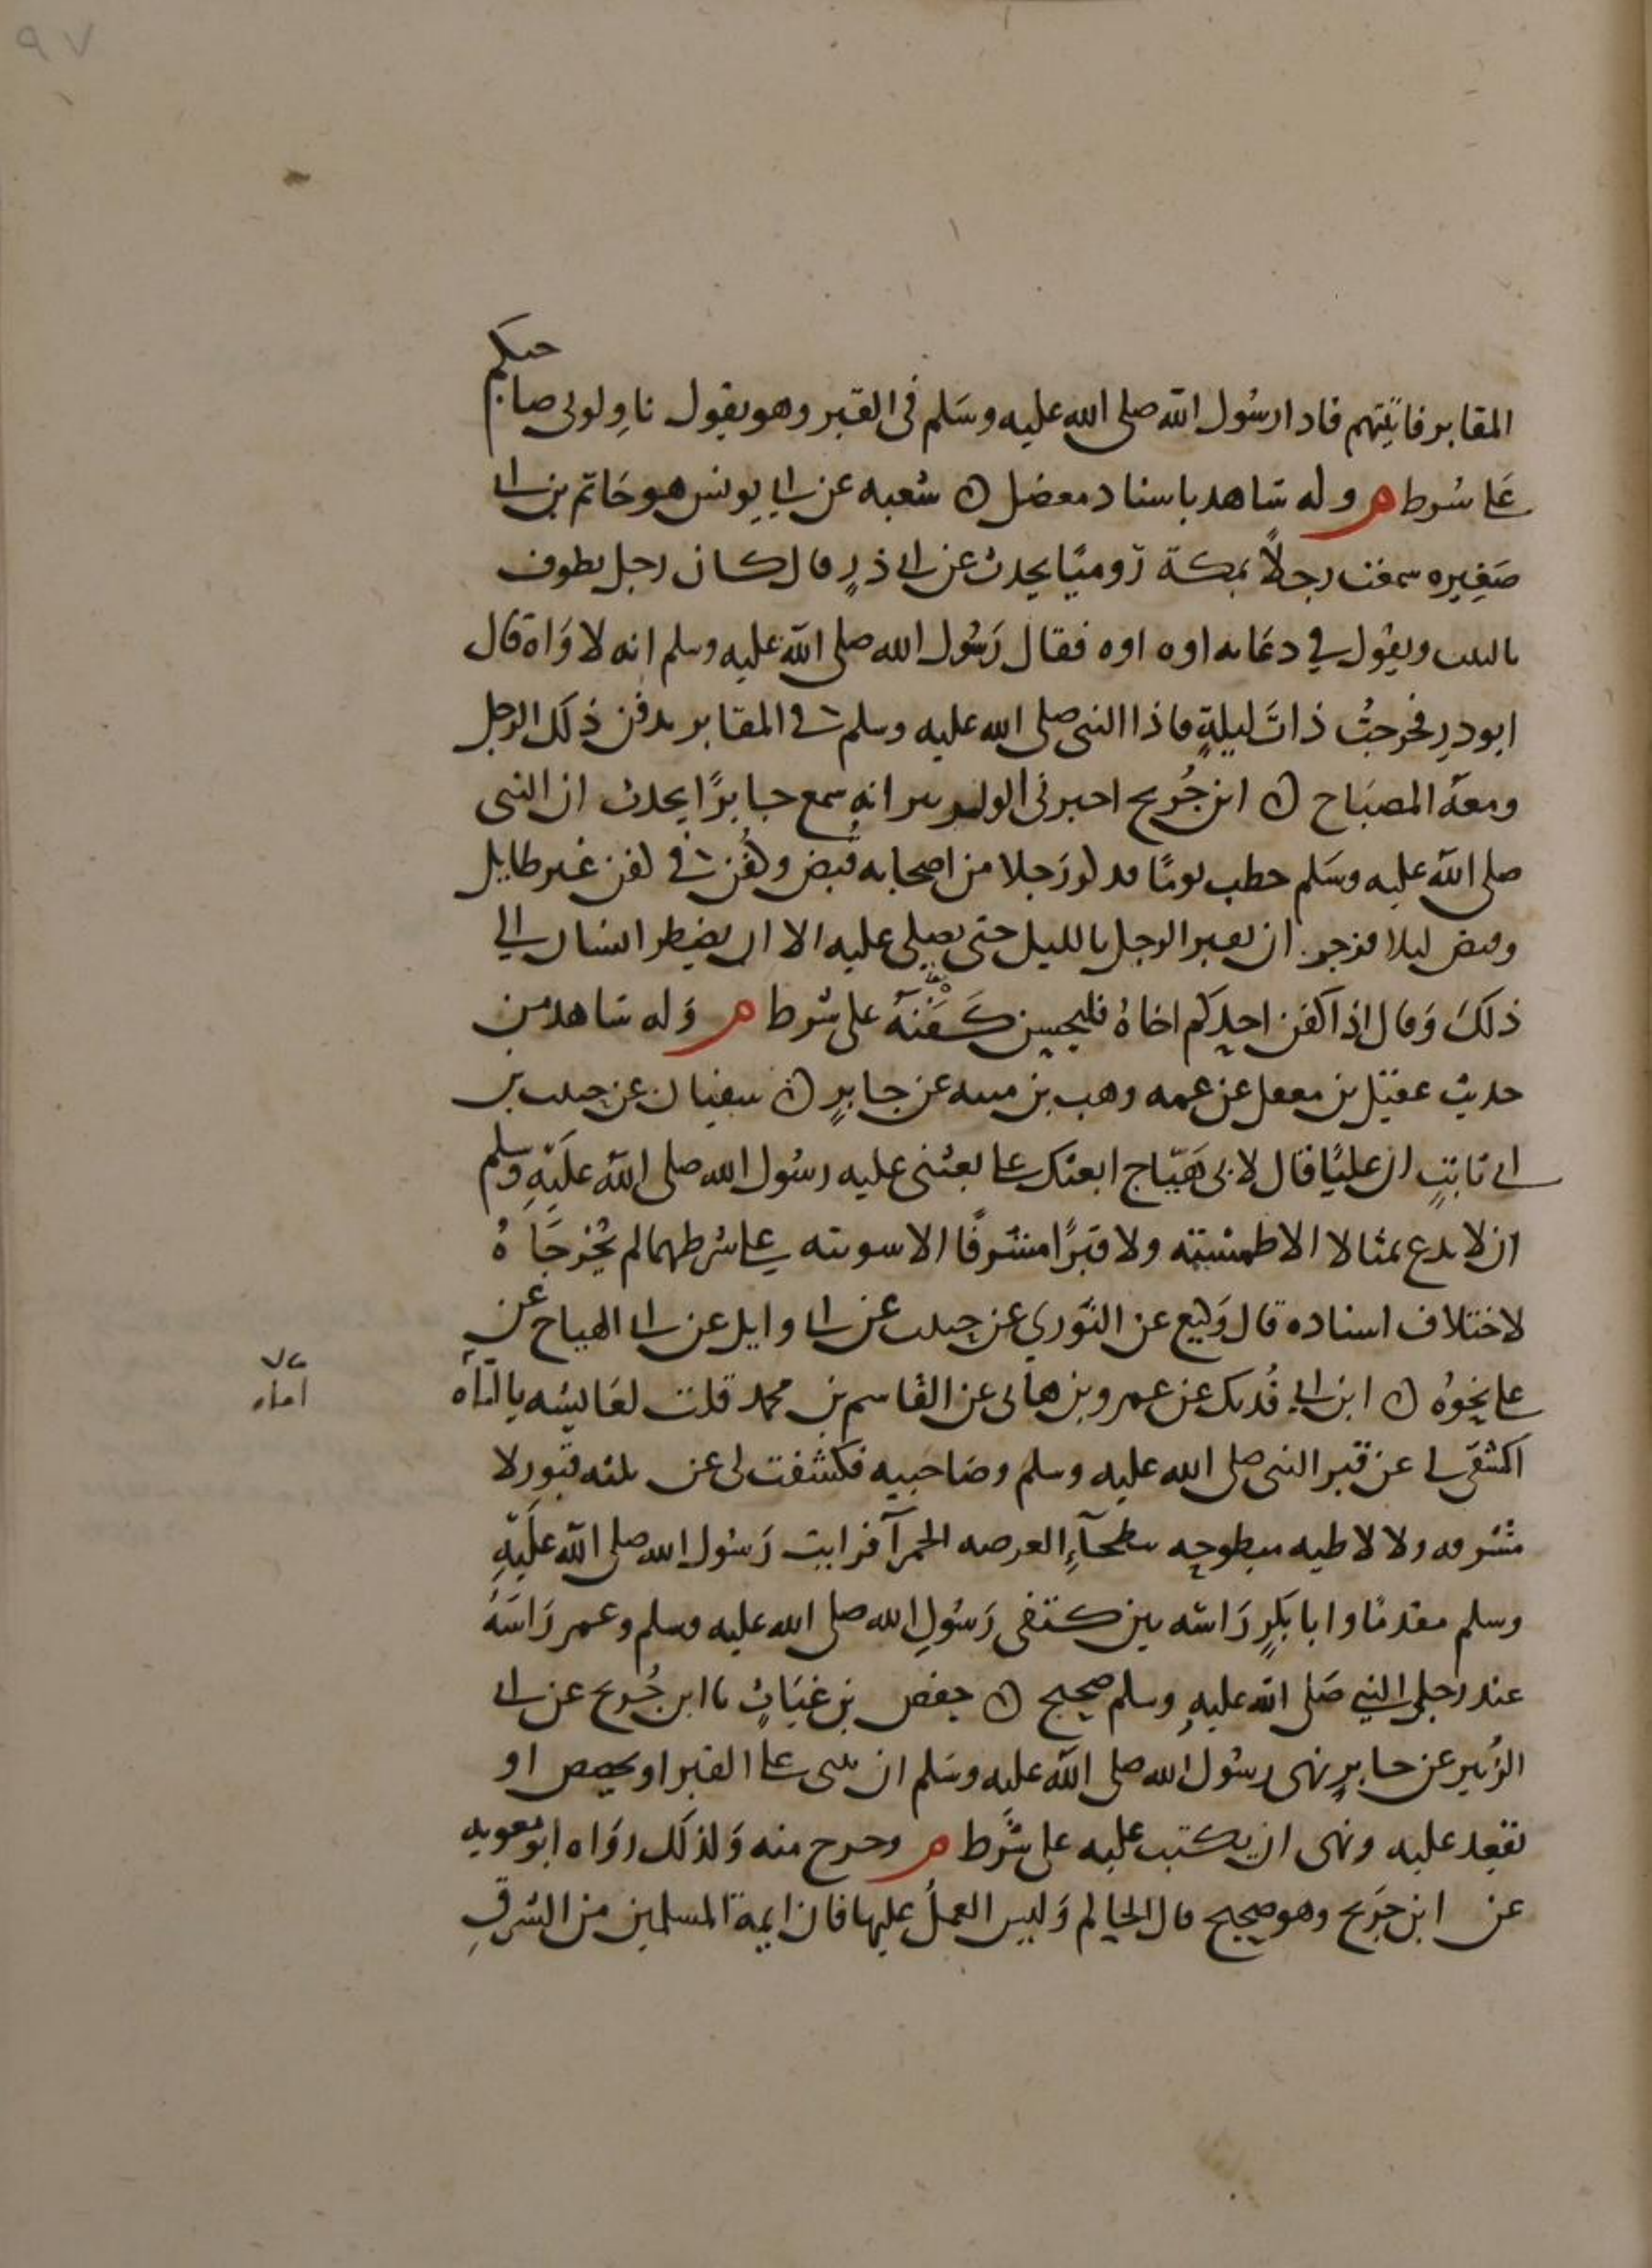 ٩٧
المقابر فاتيتهم فاذا رسول الله صلى الله عليه وسلم في القبر وهو يقول ناولوني صاحبكم
على شرط م وله شاهد باسناد معضل ن شعبه عن ابي يونس هو حاتم بن ابي
صغيره سمعت رجلاً بمكة روميًا يحدث عن ابي ذرٍ قال كان رجل يطوف
بالبيت ويقول في دعائه اوه اوه فقال رسول الله صلى الله عليه وسلم انه لاواه قال
ابوذر فخرجت ذات ليلةٍ فاذا النبي صلى الله عليه وسلم في المقابر يدفن ذلك الرجل
ومعه المصباح ن ابن جُريج اخبرني ابو الزبير انه سمع جابرًا يحدث ان النبي
صلى الله عليه وسلم خطب يومًا فذكر رجلا من اصحابه قُبض وكُفن في كفن غير طايل
وقبض ليلا فزجر ان يقبر الرجل بالليل حتى يصلى عليه الا ان يضطر انسان الى
ذلك وقال اذا كفن احدكم اخاهُ فليحسن كَفَنَهُ على شرط م وله شاهد من
حديث عقيل بن معقل عن عمه وهب بن منبه عن جابرٍ ن سفيان عن حبيب بن
ابي ثابتٍ ان عليًا قال لابي هَيّاج ابعثك على ما بعثني عليه رسول الله صلى الله عليه وسلم
ان لا تدع تمثالا الا طمسته ولا قبرًا مشرفًا الا سويته على شرطهما لم يخرجاهُ
لاختلاف اسناده قال وكيع عن الثوري عن حبيب عن ابي وايل عن ابي الهياج عن
علي نحوهُ ن ابن ابي فُديك عن عمرو بن هاني عن القاسم بن محمد قلت لعايشه يا اماه
اماه
اكشفي لي عن قبر النبي صلى الله عليه وسلم وصاحبيه فكشفت لي عن ثلثه قبور لا
مشرفه ولا لاطيه مبطوحه ببطحآء العرصه الحمرآ فرايت رسول الله صلى الله عليه
وسلم مقدمًا وابا بكرٍ راسه بين كتفي رسول الله صلى الله عليه وسلم وعمر راسه
عند رجلي النبي صلى الله عليه وسلم صحيح ن حفص بن غياثٍ نا ابن جُريج عن ابي
الزبير عن جابرٍ نهى رسول الله صلى الله عليه وسلم ان يبنى على القبر او يجصص او
يقعد عليه ونهى ان يكتب عليه على شرط م وخرج منه وكذلك رواه ابو معويه
عن ابن جريج وهو صحيح قال الحاكم وليس العمل عليها فان ايمة المسلمين من الشرق